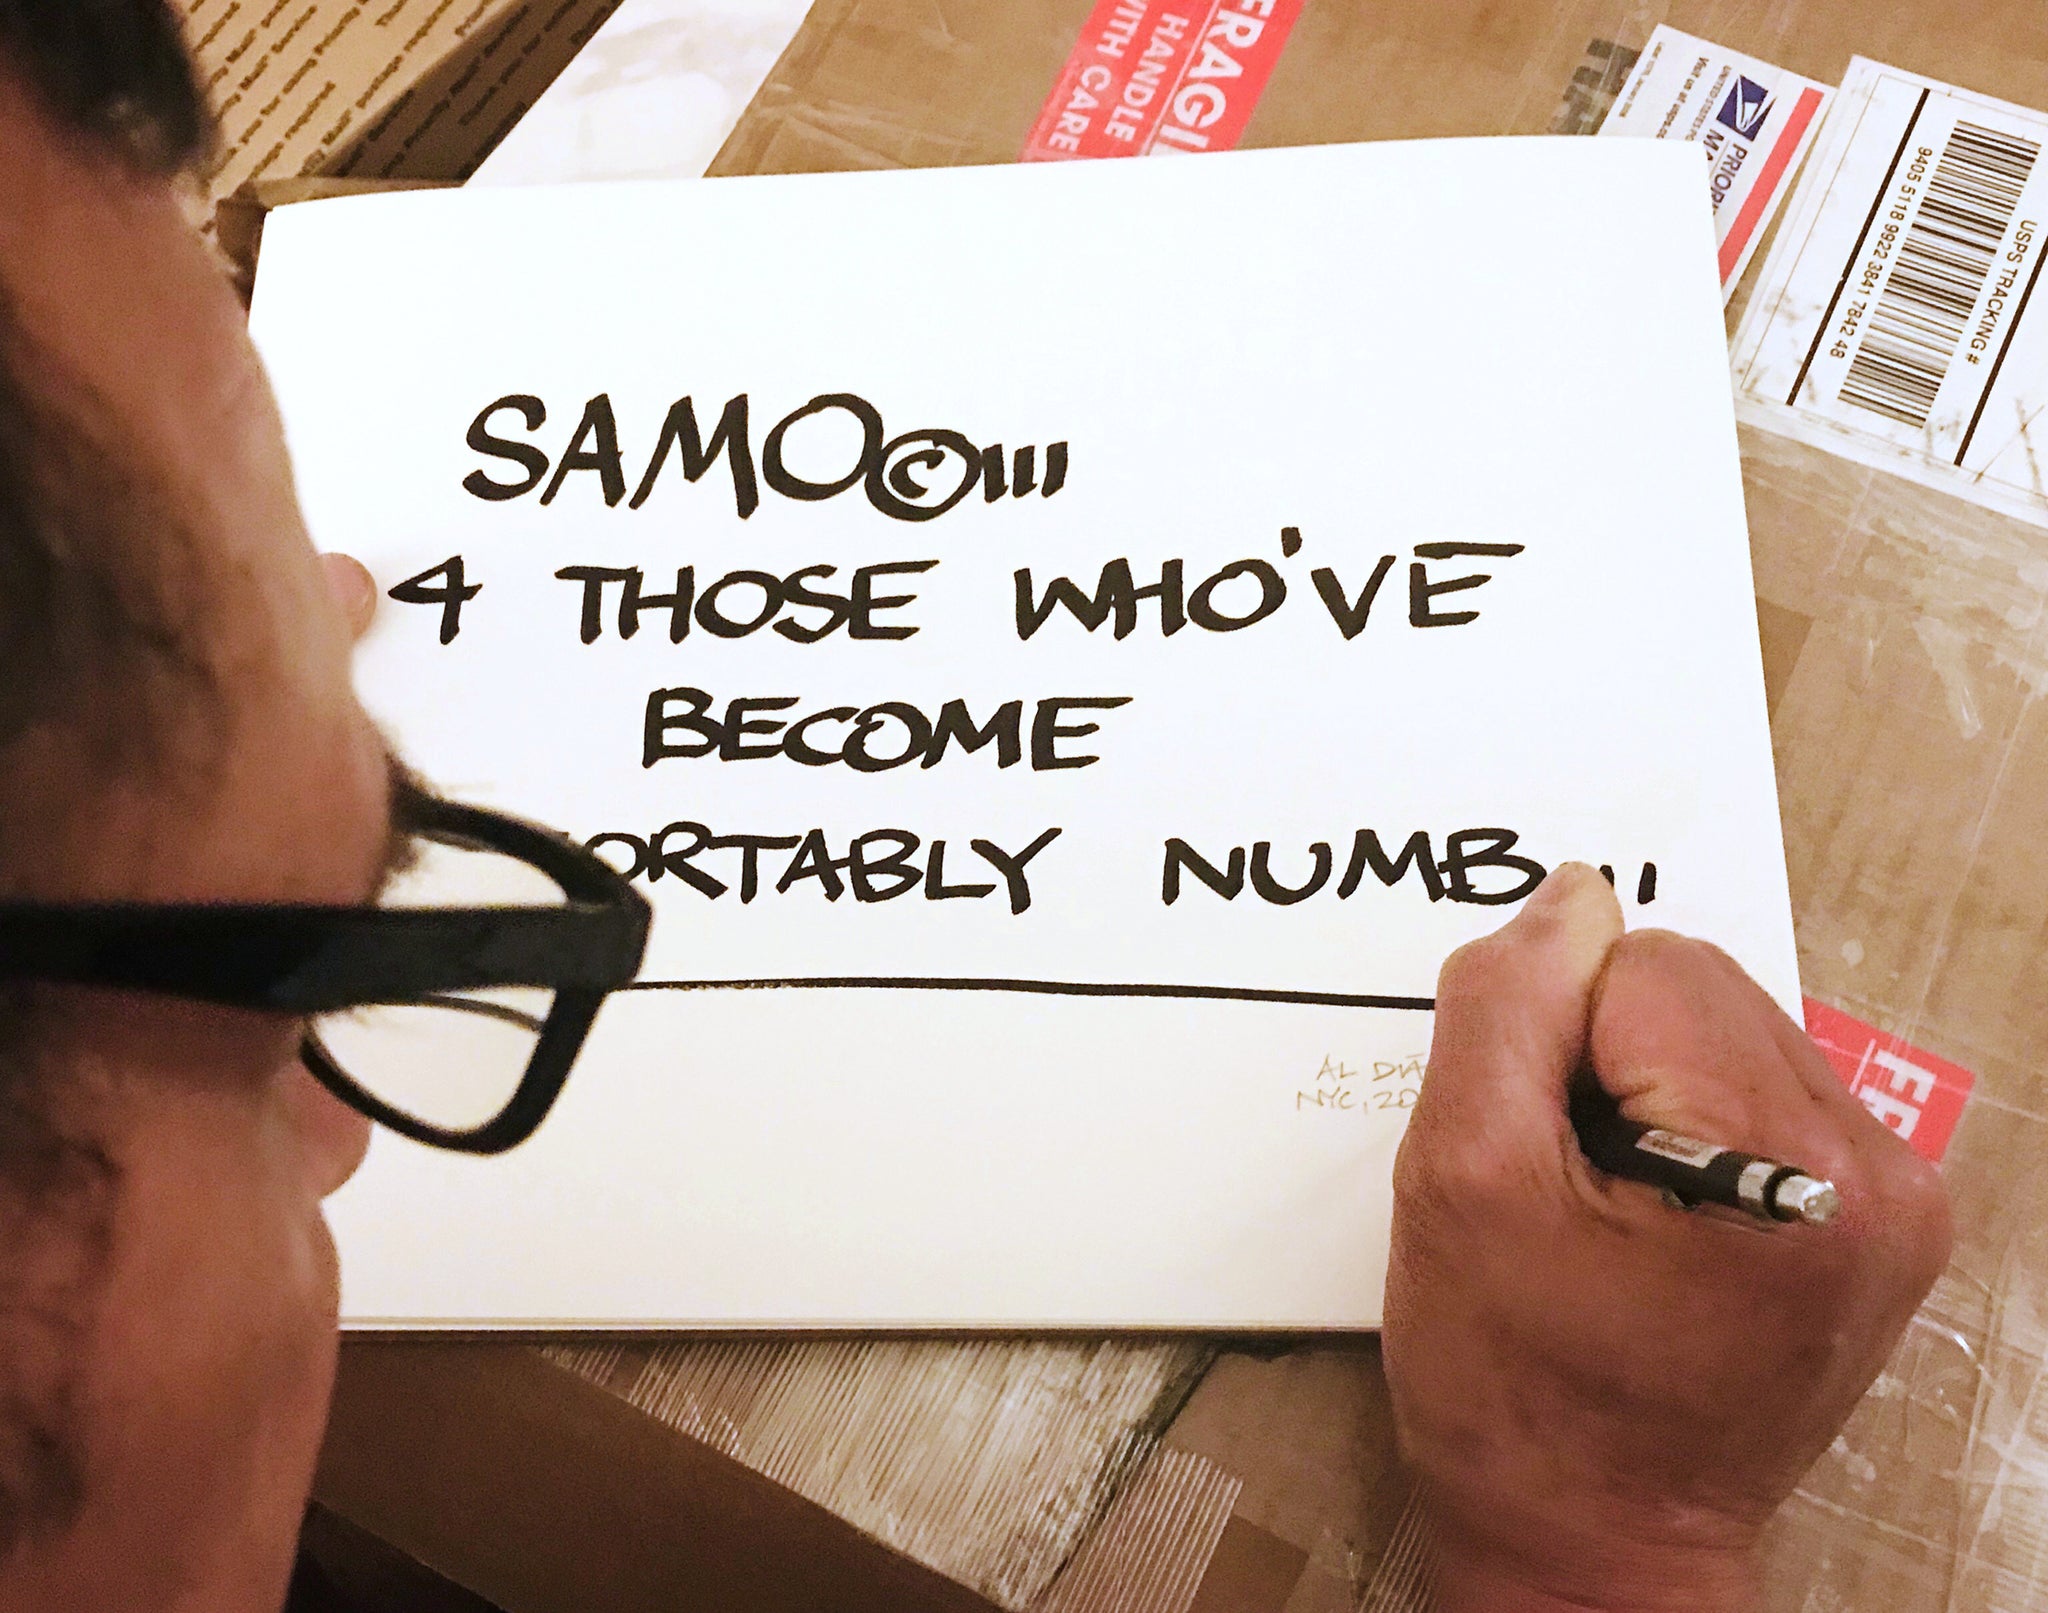 SAMO©...
4 THOSE WHO'VE
BECOME
ORTABLY NUMB...
AL DÍA
NYC, 20
FRAGIL
HANDLE
WITH CARE
PRIORI
MA
UNITED STATES PO
USPS TRACKING #
9405 5118 9922 3841 7842 48
FR